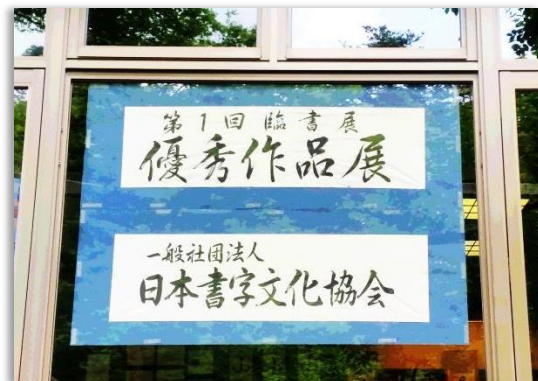 第1回臨書展
優秀作品展
一般社団法人
日本書字文化協会